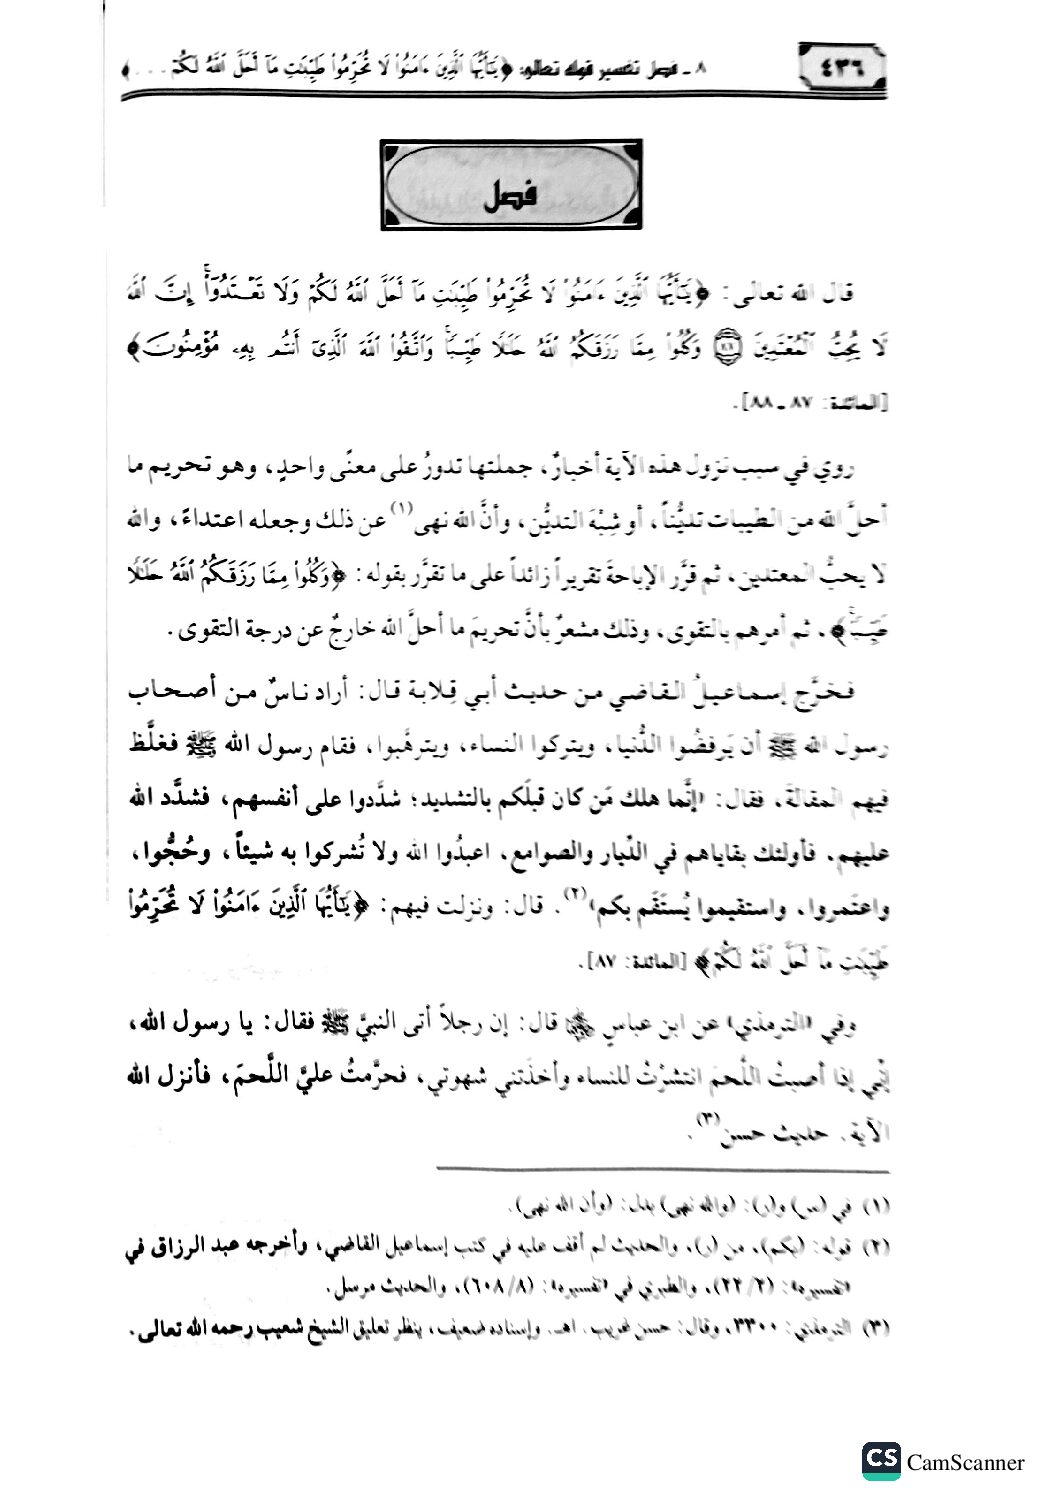 ٤٣٦
٨ - فصل تفسير قوله تعالى: ﴿يَٰٓأَيُّهَا ٱلَّذِينَ ءَامَنُوا۟ لَا تُحَرِّمُوا۟ طَيِّبَٰتِ مَآ أَحَلَّ ٱللَّهُ لَكُمْ . . .﴾
فصل
قال الله تعالى: ﴿يَٰٓأَيُّهَا ٱلَّذِينَ ءَامَنُوا۟ لَا تُحَرِّمُوا۟ طَيِّبَٰتِ مَآ أَحَلَّ ٱللَّهُ لَكُمْ وَلَا تَعْتَدُوٓا۟ۚ إِنَّ ٱللَّهَ
لَا يُحِبُّ ٱلْمُعْتَدِينَ ۝ وَكُلُوا۟ مِمَّا رَزَقَكُمُ ٱللَّهُ حَلَٰلًا طَيِّبًاۚ وَٱتَّقُوا۟ ٱللَّهَ ٱلَّذِىٓ أَنتُم بِهِۦ مُؤْمِنُونَ﴾
[المائدة: ٨٧ ـ ٨٨].
روي في سبب نزول هذه الآية أخبارٌ، جملتها تدورُ على معنًى واحدٍ، وهو تحريم ما
أحلَّ الله من الطيبات تديُّناً، أو شِبْهَ التديُّن، وأنَّ الله نهى(١) عن ذلك وجعله اعتداءً، والله
لا يحبُّ المعتدين، ثم قرَّر الإباحةَ تقريراً زائداً على ما تقرَّر بقوله: ﴿وَكُلُوا۟ مِمَّا رَزَقَكُمُ ٱللَّهُ حَلَٰلًا
طَيِّبًاۚ﴾، ثم أمرهم بالتقوى، وذلك مشعرٌ بأنَّ تحريمَ ما أحلَّ الله خارجٌ عن درجة التقوى.
فخرَّج إسماعيلُ القاضي من حديث أبي قِلابة قال: أراد ناسٌ من أصحاب
رسول الله ﷺ أن يَرفضُوا الدُّنيا، ويتركوا النساء، ويترهَّبوا، فقام رسول الله ﷺ فغلَّظ
فيهم المقالةَ، فقال: «إنَّما هلك مَن كان قبلَكم بالتشديد؛ شدَّدوا على أنفسهم، فشدَّد الله
عليهم، فأولئك بقاياهم في الدِّيار والصوامع، اعبدُوا الله ولا تُشركوا به شيئاً، وحُجُّوا،
واعتَمروا، واستقيموا يُستَقَم بكم»(٢). قال: ونزلت فيهم: ﴿يَٰٓأَيُّهَا ٱلَّذِينَ ءَامَنُوا۟ لَا تُحَرِّمُوا۟
طَيِّبَٰتِ مَآ أَحَلَّ ٱللَّهُ لَكُمْ﴾ [المائدة: ٨٧].
وفي «الترمذي» عن ابن عباسٍ قال: إن رجلاً أتى النبيَّ ﷺ فقال: يا رسول الله،
إنِّي إذا أصبتُ اللَّحمَ انتشرْتُ للنساء وأخذَتني شهوتي، فحرَّمتُ عليَّ اللَّحمَ، فأنزل الله
الآية. حديث حسن(٣).
(١) في (س) و(ر): (والله نهى) بدل: (وأن الله نهى).
(٢) قوله: (بكم)، من (ر)، والحديث لم أقف عليه في كتب إسماعيل القاضي، وأخرجه عبد الرزاق في
«تفسيره»: (٢/ ٢٢)، والطبري في «تفسيره»: (٨/ ٦٠٨)، والحديث مرسل.
(٣) الترمذي: ٣٣٠٠، وقال: حسن غريب. اهـ. وإسناده ضعيف، ينظر تعليق الشيخ شعيب رحمه الله تعالى.
CS CamScanner